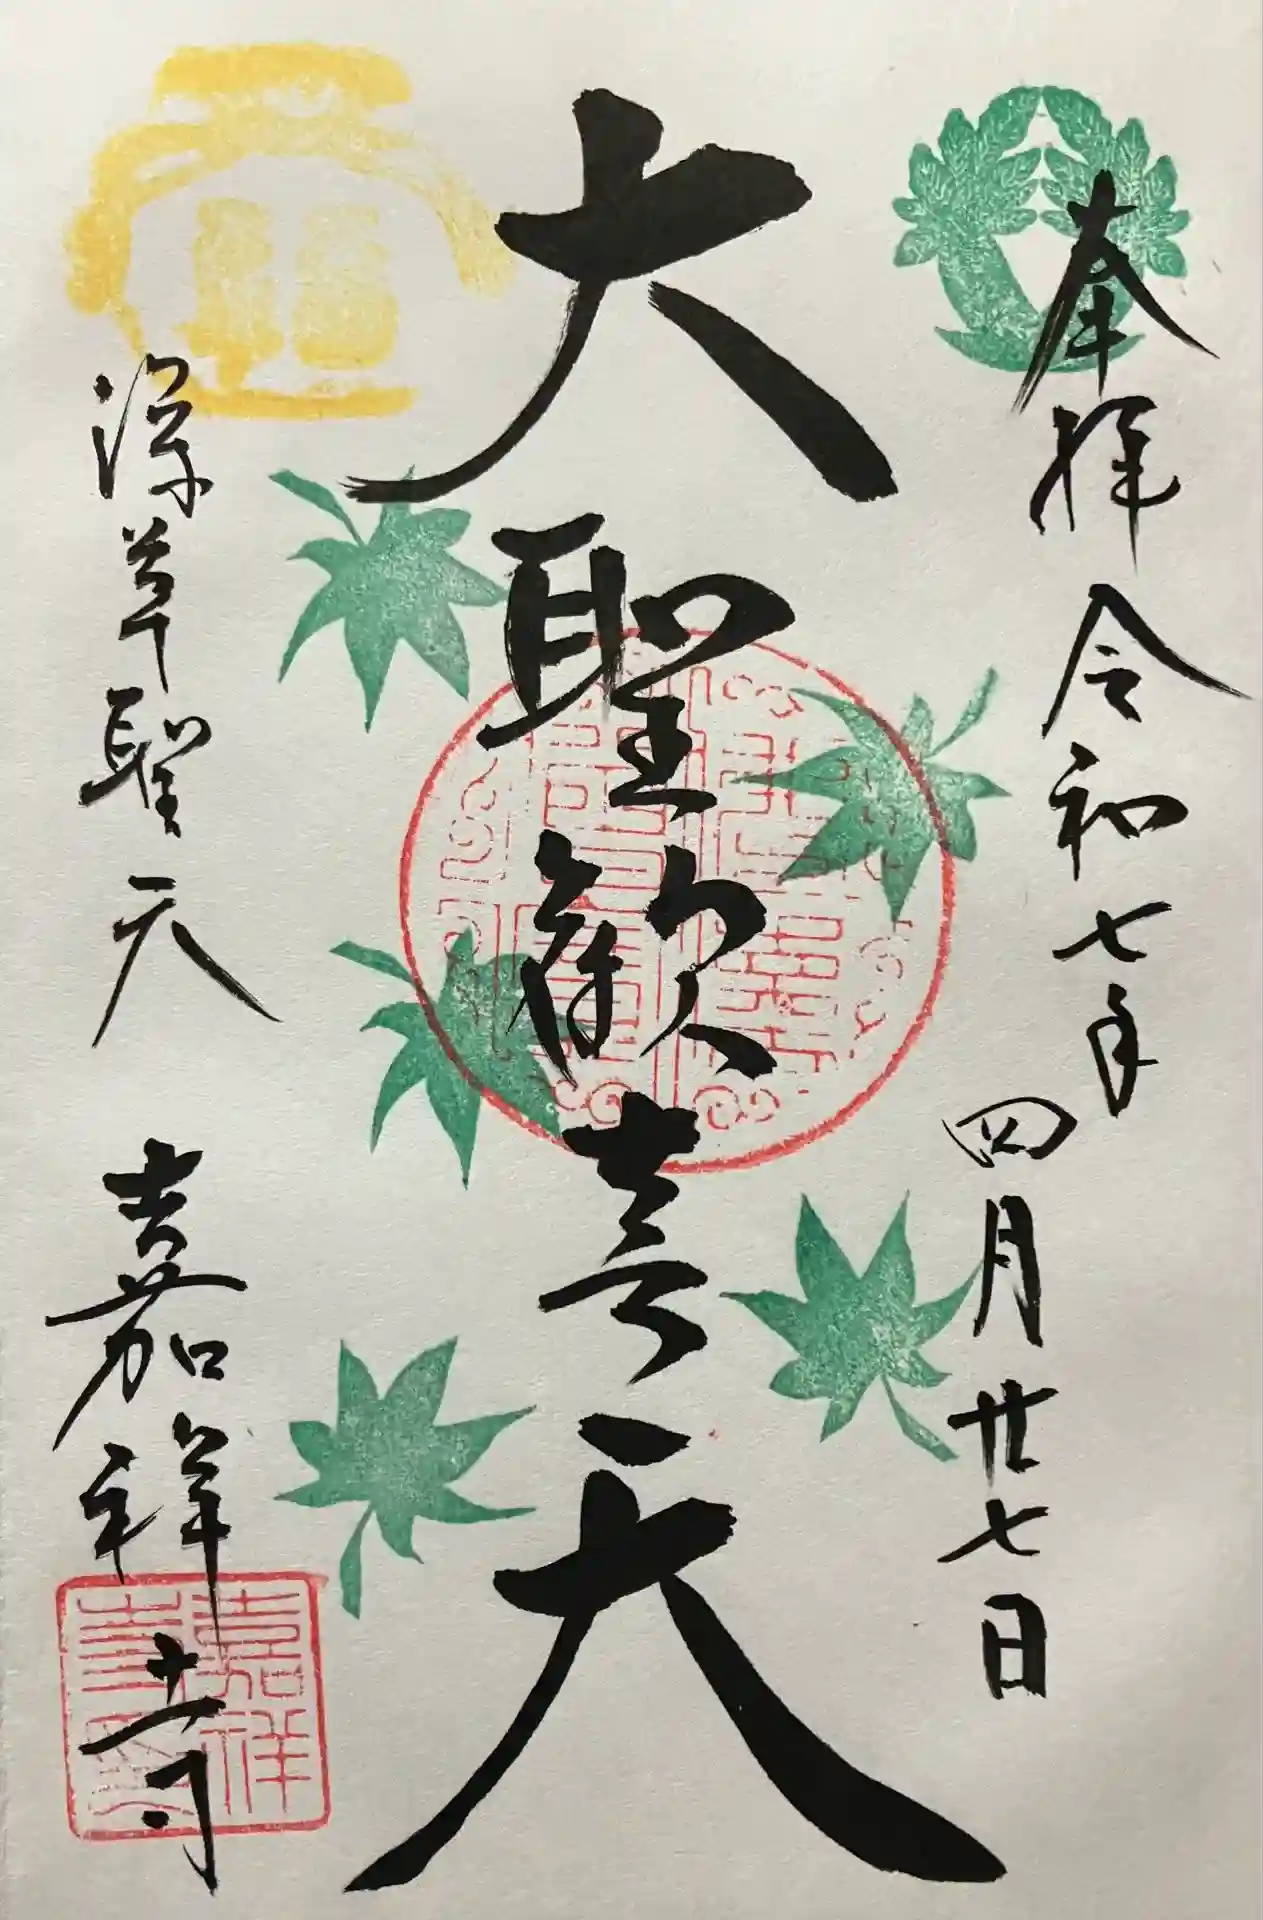 奉拝 令和七年 四月廿七日
大聖歓喜天
深草聖天 嘉祥寺
嘉祥寺印